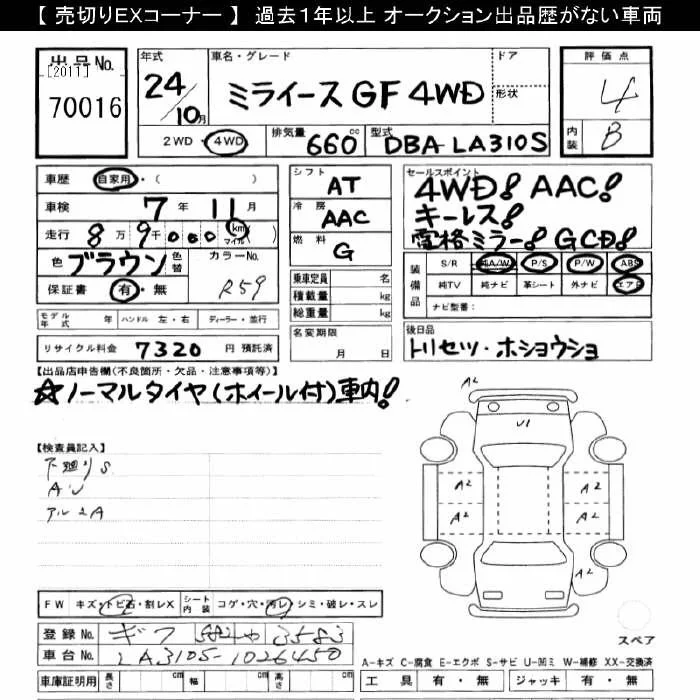 【 売切りEXコーナー 】 過去１年以上 オークション出品歴がない車両
出品No.
[2011]
70016
年式
24/10月
車名・グレード
ミライース GF 4WD
ドア
形状
評価点
4
内装
B
2WD・4WD
排気量
660cc
型式
DBA-LA310S
車歴
自家用・( )
車検
7年 11月
走行
8万 9千 0 0 0 km マイル( )
色
ブラウン
色替
カラーNo.
R59
保証書
有・無
シフト
AT
冷房
AAC
燃料
G
セールスポイント
4WD! AAC!
キーレス!
電格ミラー! GCD!
装備品
S/R
A/W
P/S
P/W
ABS
純TV
純ナビ
革シート
外ナビ
エアB
ナビ型番:
乗車定員 名
積載量 kg
総重量 kg
名変期限
月 日
モデル年式 年
ハンドル 左・右
ディーラー・並行
リサイクル料金 7320 円 預託済
後日品
トリセツ・ホショウショ
【出品店申告欄(不良箇所・欠品・注意事項等)】
☆ノーマルタイヤ(ホイール付)車内!
【検査員記入】
下廻りS
A U
アルミA
A2
U1
A2
A2
A2
A2
A2
FW キズ・トビ石・割レX
シート内装 コゲ・穴・汚レ・シミ・破レ・スレ
登録No. ギフ 3583
車台No. LA310S-1026450
車庫証明用 長さ cm 幅 cm 高さ cm
スペア
A-キズ C-腐食 E-エクボ S-サビ U-凹ミ W-補修 XX-交換済
工具 有・無 ジャッキ 有・無